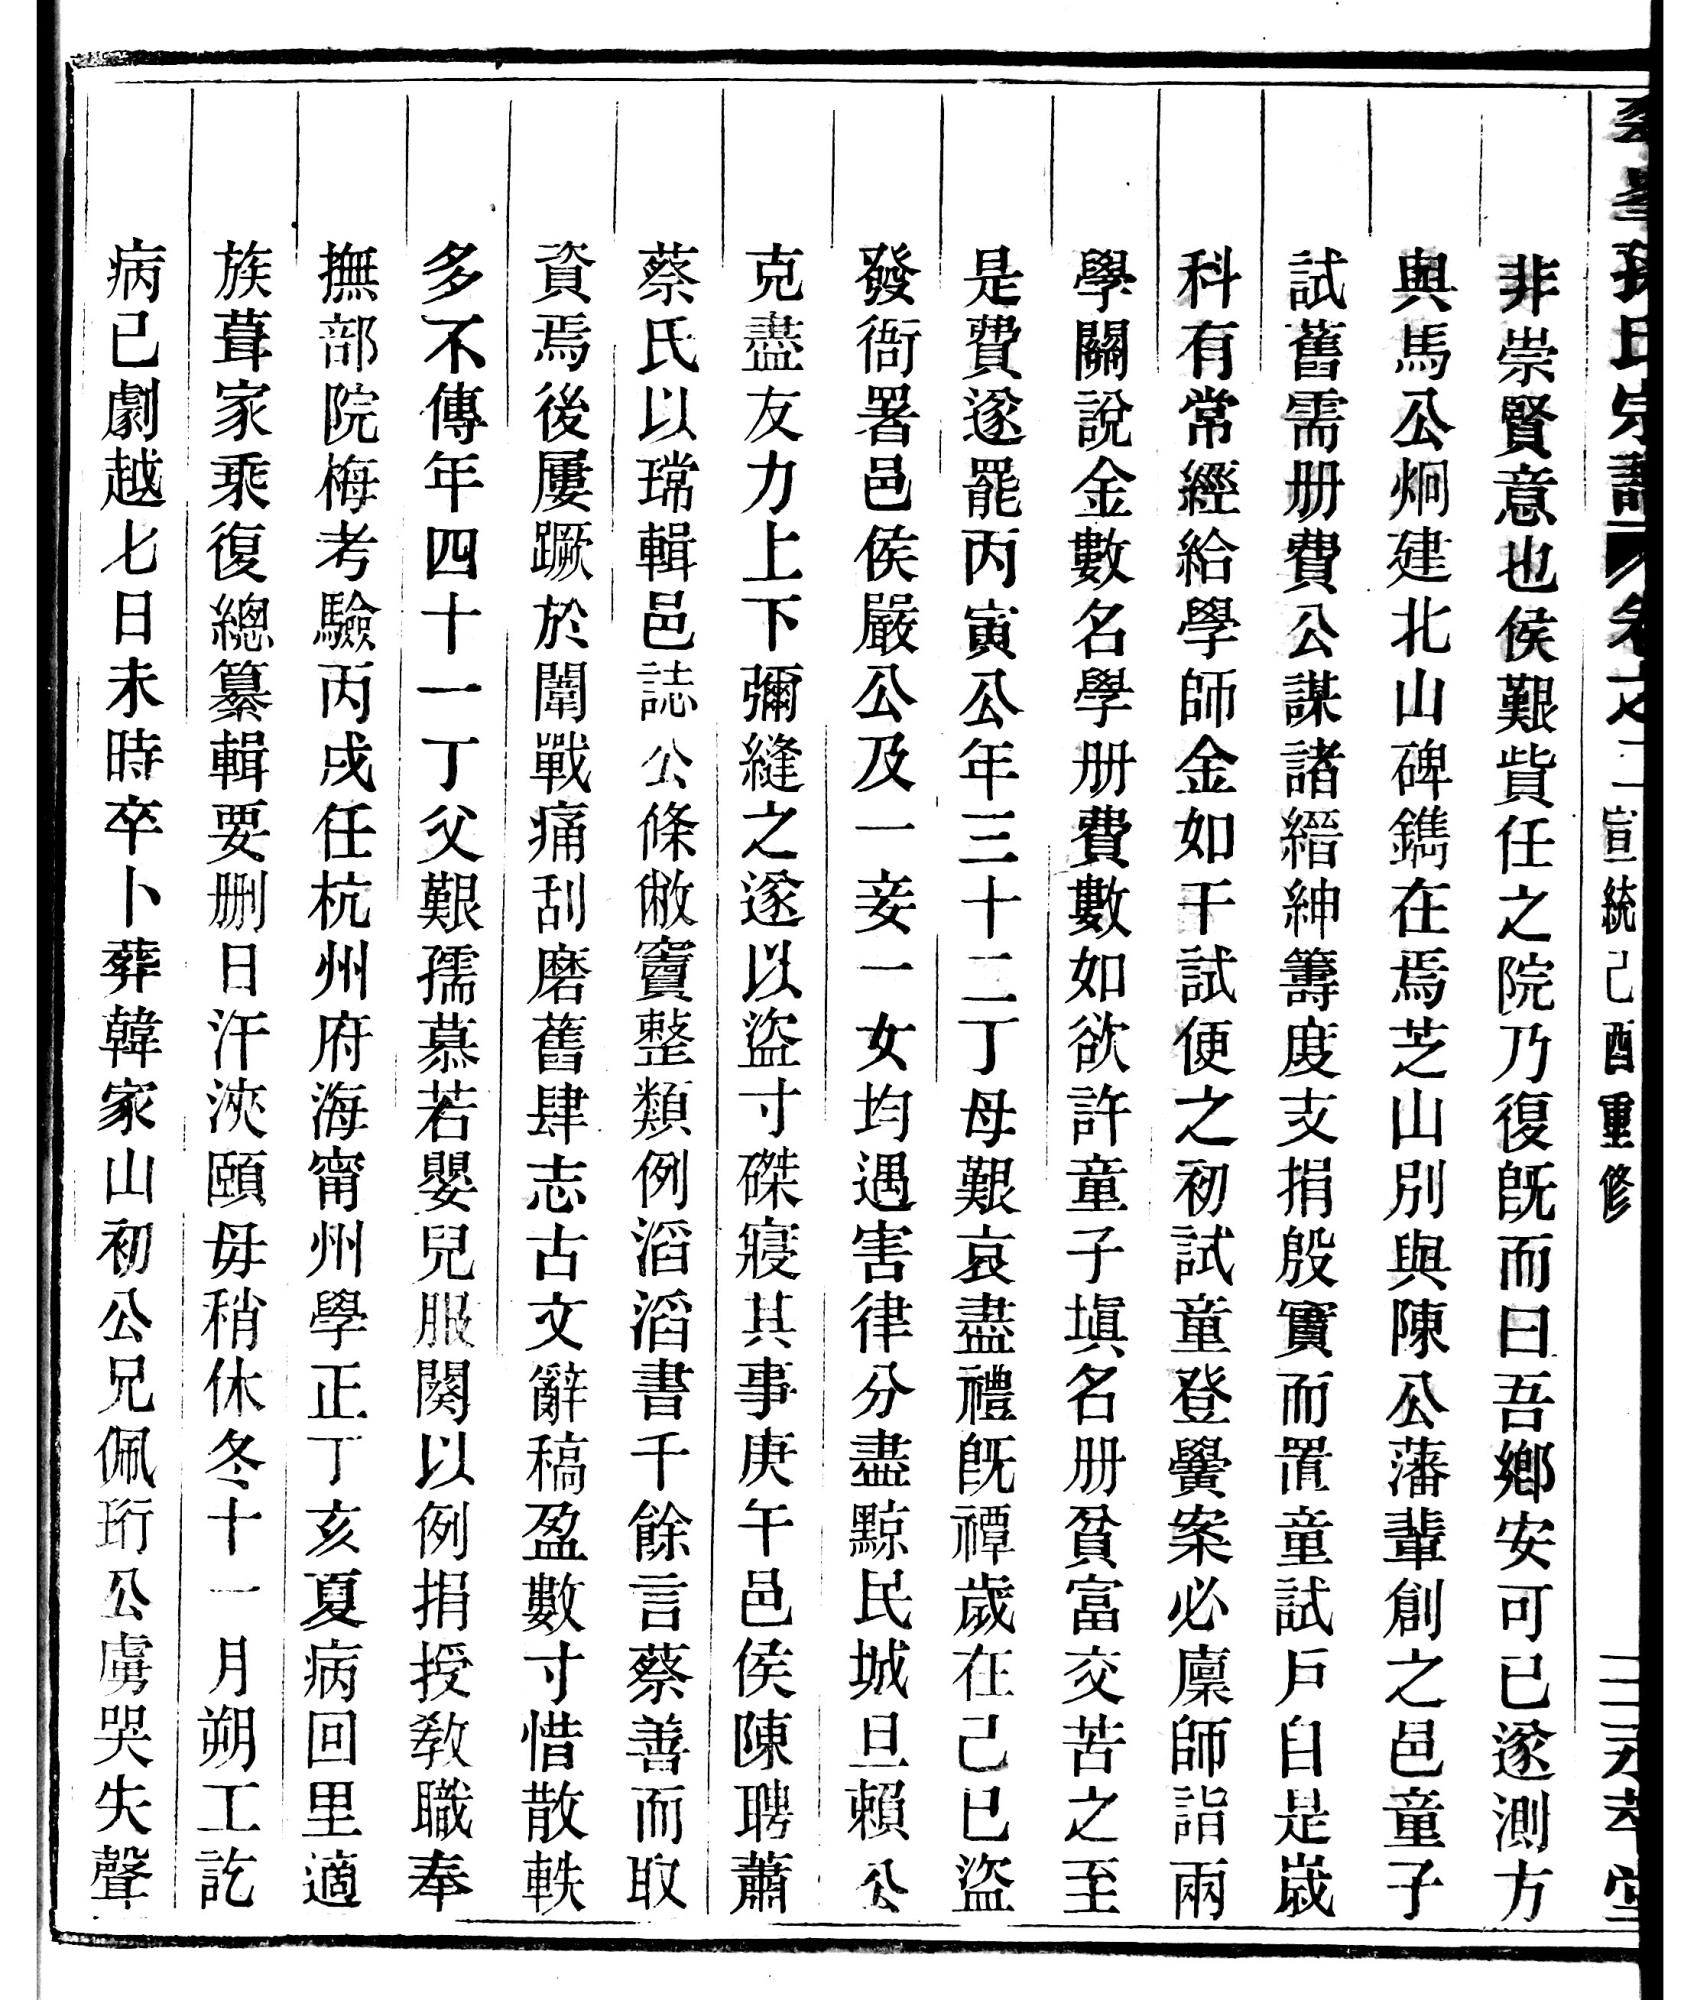 孫氏宗譜 卷之二 宣統己酉重修
非崇賢意也侯艱貲任之院乃復旣而曰吾鄉安可已遂測方
與馬公炯建北山碑鐫在焉芝山別與陳公藩輩創之邑童子
試舊需册費公謀諸縉紳籌度支捐殷實而置童試戶自是歲
科有常經給學師金如干試便之初試童登黌案必廩師詣兩
學關說金數名學册費數如欲許童子塡名册貧富交苦之至
是費遂罷丙寅公年三十二丁母艱哀盡禮旣禫歲在己巳盜
發衙署邑侯嚴公及一妾一女均遇害律分盡黥民城旦賴公
克盡友力上下彌縫之遂以盜寸磔寢其事庚午邑侯陳聘蕭
蔡氏以瑺輯邑誌公條敝竇整類例滔滔書千餘言蔡善而取
資焉後屢蹶於闈戰痛刮磨舊肆志古文辭稿盈數寸惜散軼
多不傳年四十一丁父艱孺慕若嬰兒服闋以例捐授敎職奉
撫部院梅考驗丙戌任杭州府海甯州學正丁亥夏病回里適
族葺家乘復總纂輯要删日汗浹頤毋稍休冬十一月朔工訖
病已劇越七日未時卒卜葬韓家山初公兄佩珩公虜哭失聲